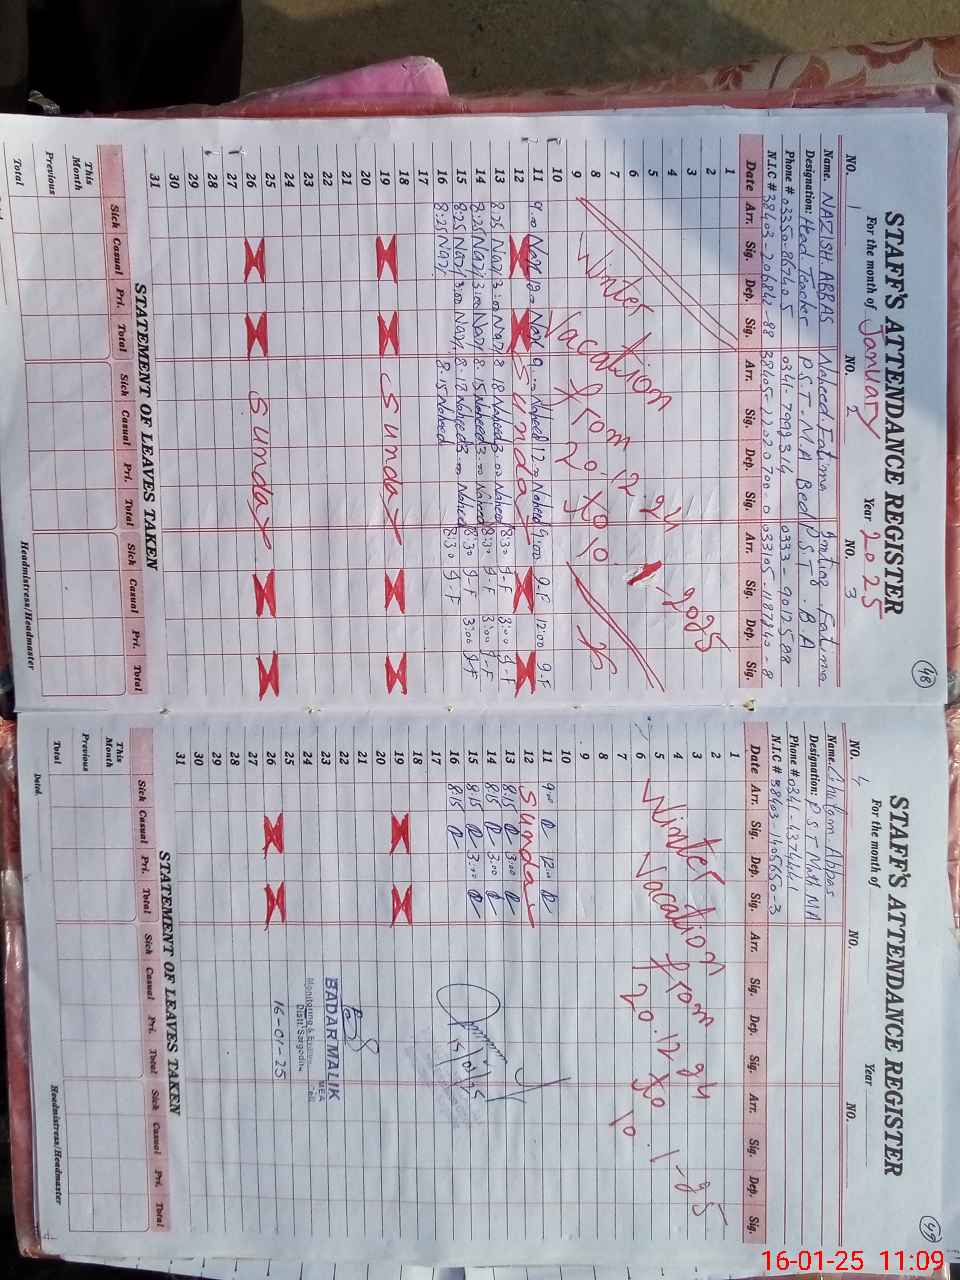 48
STAFF'S ATTENDANCE REGISTER
For the month of January Year 2025
NO. 1 NO. 2 NO. 3
Name. NAZISH ABBAS Naheed Fatima Fatima
Designation: Head Teacher P.S.T. M.A Bed P.S.T. B.A
Phone # 03350-867405 0341-7992314 0333-9012588
N.I.C # 38403-2220700-0
Date Arr. Sig. Dep. Sig. Arr. Sig. Dep. Sig. Arr. Sig. Dep. Sig.
1
2
3
4
5
6
7
8
9
Winter Vacation from 20.12.24 to 10-1-2025
10
11 9.00 Nazi 12.00 Nazi 9.00 Naheed 12.00 Naheed 9:00 12:00
12 Sunday
13 8.25 Nazi 3:00 Nazi 8.18 Naheed 3.00 Naheed 8:30 3:00
14 8:25 Nazi 3:00 Nazi 8.15 Naheed 3.00 Naheed 8:30 3:00
15 8:25 Nazi 3:00 Nazi 8.13 Naheed 3.00 Naheed 8:30 3:00
16 8:25 Nazi 8.15 Naheed 8:30
17
18
19 Sunday
20
21
22
23
24
25
26 Sunday
27
28
29
30
31
STATEMENT OF LEAVES TAKEN
Sick Casual Pri. Total Sick Casual Pri. Total Sick Casual Pri. Total
This Month
Previous
Total
Headmistress/Headmaster
49
STAFF'S ATTENDANCE REGISTER
For the month of Year
NO. 4 NO. NO.
Name. Ghulam Abbas
Designation: P.S.T Math MA
Phone # 0341-4374441
N.I.C # 38403-1405650-3
Date Arr. Sig. Dep. Sig. Arr. Sig. Dep. Sig. Arr. Sig. Dep. Sig.
1
2
3
4
5
6
7
8
9
Winter Vacation from 20.12.24 to 10.1-25
10
11 9.00 12.00
12 Sunday
13 8.15 3:00
14 8.15 3:00
15 8.15 3:00
16 8.15
17
18
19
20
21
22
23
24
25
26
27
28
29
30
31
15/01/25
BADAR MALIK
MEA
Monitoring & Cell
Distt: Sargodha
16-01-25
STATEMENT OF LEAVES TAKEN
Sick Casual Pri. Total Sick Casual Pri. Total Sick Casual Pri. Total
This Month
Previous
Total
Dated.
Headmistress/Headmaster
16-01-25 11:09